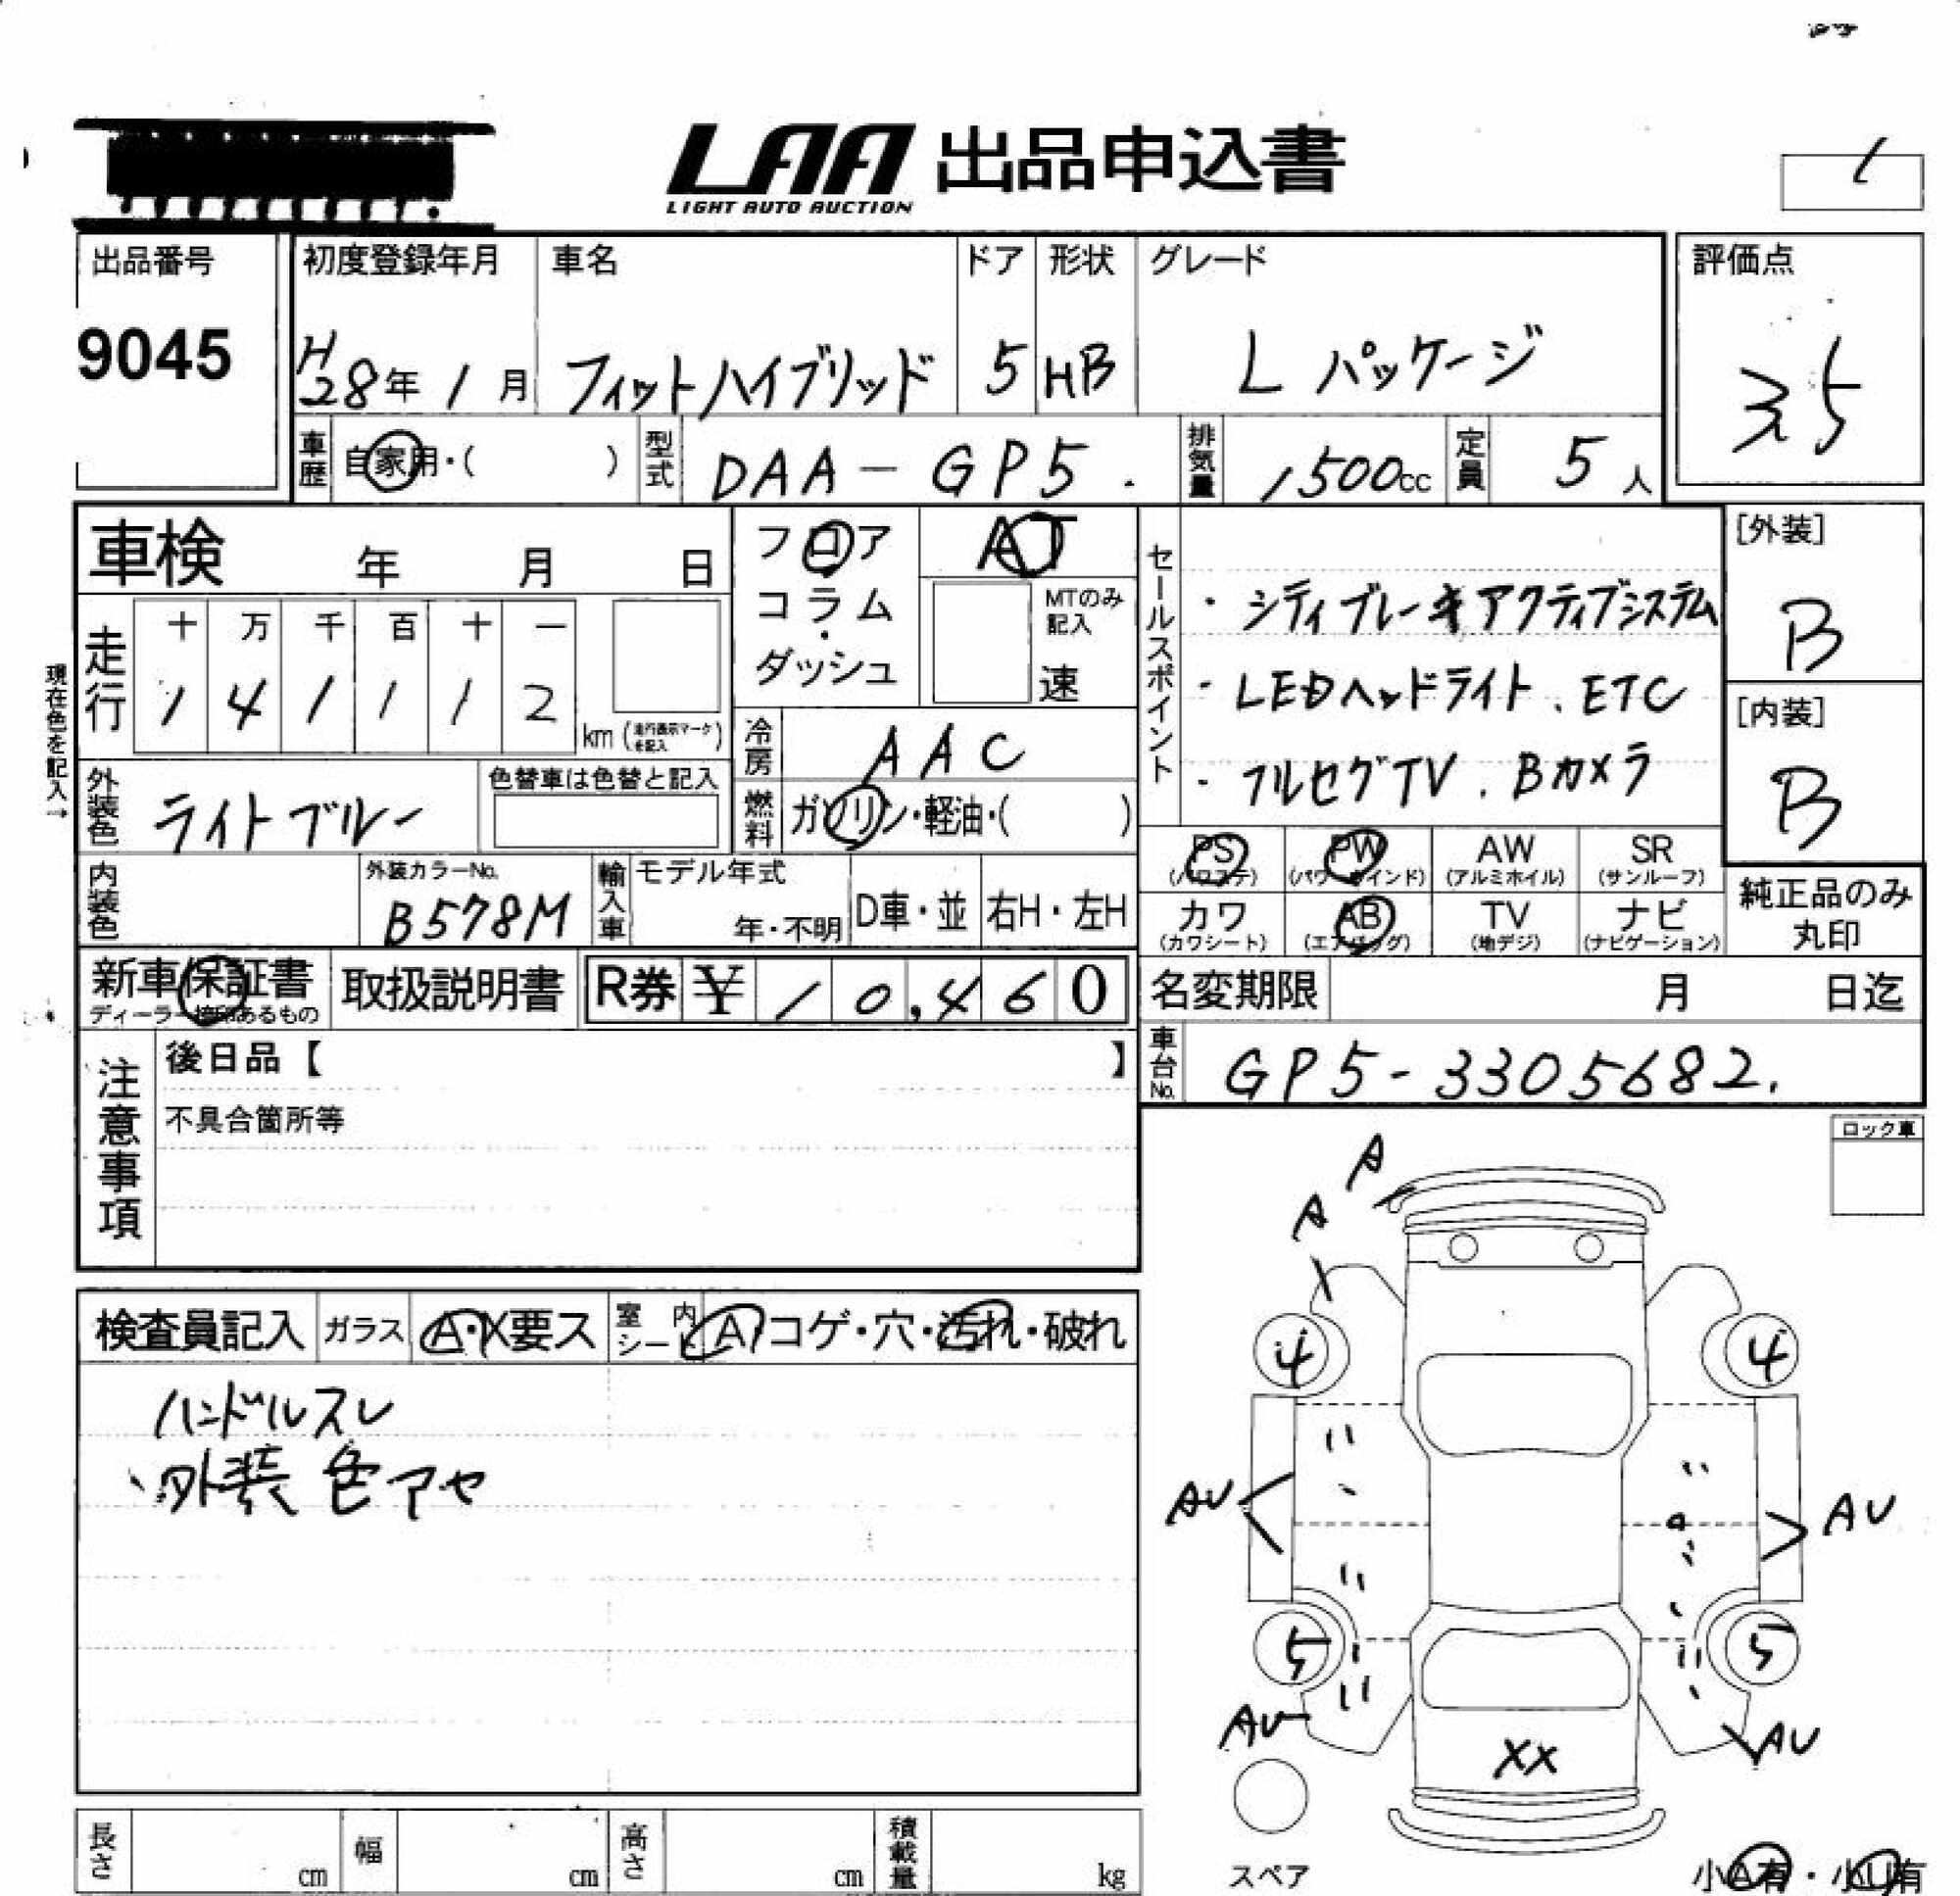 LAA 出品申込書
LIGHT AUTO AUCTION
出品番号
9045
初度登録年月
H28年 1月
車名
フィットハイブリッド
ドア
5
形状
HB
グレード
L パッケージ
評価点
3.5
車歴
自家用・( )
型式
DAA-GP5.
排気量
1500cc
定員
5人
車検 年 月 日
フロア
コラム
・
ダッシュ
AT
MTのみ
記入
速
セールスポイント
・シティブレーキアクティブシステム
・LEDヘッドライト、ETC
・フルセグTV、Bカメラ
[外装]
B
[内装]
B
現在色を記入→
走行
十 万 千 百 十 一
1 4 1 1 1 2
km (走行表示マークを記入)
冷房
AAC
燃料
ガソリン・軽油・( )
外装色
ライトブルー
色替車は色替と記入
内装色
外装カラーNo.
B578M
輸入車
モデル年式
年・不明
D車・並
右H・左H
PS
(パワステ)
PW
(パワーウインド)
AW
(アルミホイル)
SR
(サンルーフ)
カワ
(カワシート)
AB
(エアバッグ)
TV
(地デジ)
ナビ
(ナビゲーション)
純正品のみ
丸印
新車保証書
ディーラー捺印あるもの
取扱説明書
R券 ¥ 10,460
名変期限 月 日迄
車台No.
GP5-3305682.
注意事項
後日品【 】
不具合箇所等
ロック車
検査員記入
ガラス
A・X要ス
室内
シート
A コゲ・穴・汚れ・破れ
ハンドルスレ
、外装色アセ
A
A
4
4
AU
AU
5
5
AU
AU
XX
スペア
小A有・小U有
長さ cm
幅 cm
高さ cm
積載量 kg